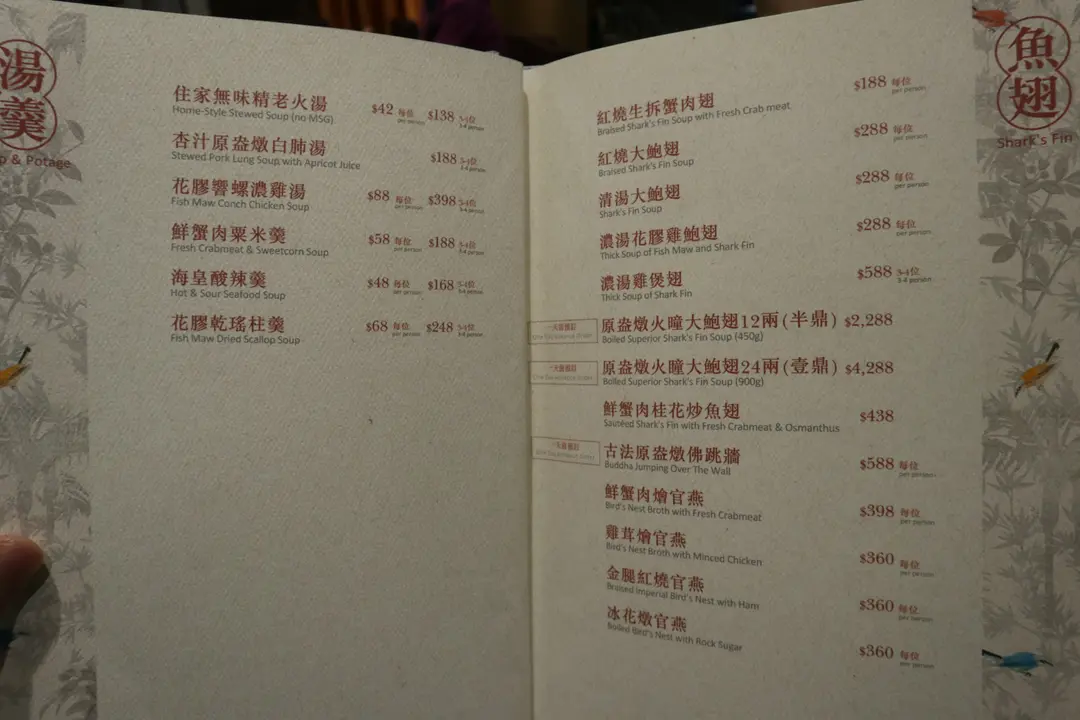 湯羹
p & Potage
住家無味精老火湯
Home-Style Stewed Soup (no MSG)
$42 每位 per person $138 3-4位 3-4 person
杏汁原盅燉白肺湯
Stewed Pork Lung Soup with Apricot Juice
$188 3-4位 3-4 person
花膠響螺濃雞湯
Fish Maw Conch Chicken Soup
$88 每位 per person $398 3-4位 3-4 person
鮮蟹肉粟米羹
Fresh Crabmeat & Sweetcorn Soup
$58 每位 per person $188 3-4位 3-4 person
海皇酸辣羹
Hot & Sour Seafood Soup
$48 每位 per person $168 3-4位 3-4 person
花膠乾瑤柱羹
Fish Maw Dried Scallop Soup
$68 每位 per person $248 3-4位 3-4 person
魚翅
Shark's Fin
紅燒生拆蟹肉翅
Braised Shark's Fin Soup with Fresh Crab meat
$188 每位 per person
紅燒大鮑翅
Braised Shark's Fin Soup
$288 每位 per person
清湯大鮑翅
Shark's Fin Soup
$288 每位 per person
濃湯花膠雞鮑翅
Thick Soup of Fish Maw and Shark Fin
$288 每位 per person
濃湯雞煲翅
Thick Soup of Shark Fin
$588 3-4位 3-4 person
一天前預訂
One Day advance order
原盅燉火瞳大鮑翅12兩(半鼎) $2,288
Boiled Superior Shark's Fin Soup (450g)
一天前預訂
One Day advance order
原盅燉火瞳大鮑翅24兩(壹鼎) $4,288
Boiled Superior Shark's Fin Soup (900g)
鮮蟹肉桂花炒魚翅
Sautéed Shark's Fin with Fresh Crabmeat & Osmanthus
$438
一天前預訂
One Day advance order
古法原盅燉佛跳牆
Buddha Jumping Over The Wall
$588 每位 per person
鮮蟹肉燴官燕
Bird's Nest Broth with Fresh Crabmeat
$398 每位 per person
雞茸燴官燕
Bird's Nest Broth with Minced Chicken
$360 每位 per person
金腿紅燒官燕
Braised Imperial Bird's Nest with Ham
$360 每位 per person
冰花燉官燕
Boiled Bird's Nest with Rock Sugar
$360 每位 per person